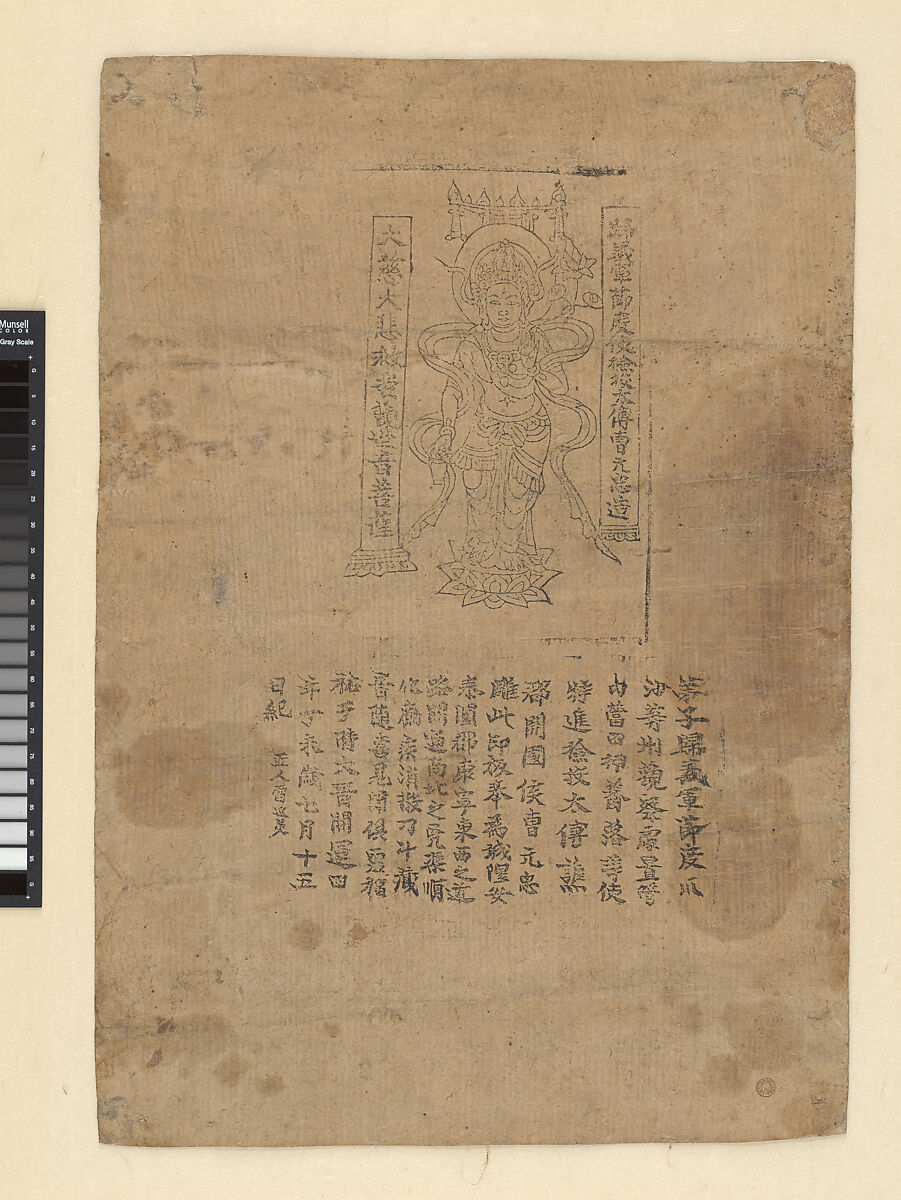 歸義軍節度使撿挍太傅曹元忠造
大慈大悲救苦觀世音菩薩
弟子歸義軍節度瓜
沙等州觀察處置管
內營田押蕃落等使
特進撿挍太傅譙
郡開國侯曹元忠
雕此印板奉為城隍安
泰闔郡康寧東西之道
路開通南北之兇渠順
化癘疾消散刁斗藏
音隨喜見聞俱霑福
祐于時大晉開運四
年丁未歲七月十五
日紀 匠人雷延美
Munsell
COLOR
Gray Scale